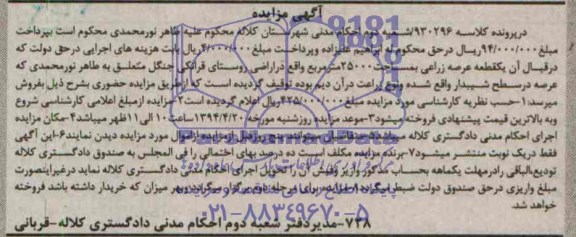 آگهی مزایده
درپرونده کلاسه ۹۳۰۲۹۶/شعبه دوم احکام مدنی شهرستان کلاله محکوم علیه طاهر نورمحمدی محکوم است بپرداخت
مبلغ ۹۴/۰۰۰/۰۰۰ریال درحق محکوم له ابراهیم علیزاده وپرداخت مبلغ ۴/۰۰۰/۰۰۰ریال بابت هزینه های اجرایی درحق دولت که
درقبال آن یکقطعه عرصه زراعی بمساحت ۲۵۰۰۰مترمربع واقع دراراضی روستای جنگل متعلق به طاهر نورمحمدی که
عرصه درسطح شیبدار واقع شده ونوع زراعت درآن دیم بوده توقیف گردیده است که ازطریق مزایده حضوری بشرح ذیل بفروش
میرسد:۱-حسب نظریه کارشناسی مورد مزایده مبلغ ۴۲۵/۰۰۰/۰۰۰ریال اعلام گردیده است۲-مزایده ازمبلغ اعلامی کارشناسی شروع
وبه بالاترین قیمت پیشنهادی فروخته میشود۳-موعد مزایده روزشنبه مورخه ۱۳۹۴/۴/۲۰ساعت ۱۰ الی ۱۱ظهر میباشد۴-مکان مزایده
اجرای احکام مدنی دادگستری کلاله میباشد۵-متقاضیان میتوانند پنج روزقبل ازمزایده ازاموال مورد مزایده دیدن نمایند۶-این آگهی
فقط دریک نوبت منتشر میشود۷-برنده مزایده مکلف است ده درصد بهای احتمالی را فی المجلس به صندوق دادگستری کلاله
تودیع،الباقی رادرمهلت یکماهه بحساب مذکور واریز وفیش آن را تحویل اجرای احکام مدنی دادگستری کلاله نماید درغیراینصورت
مبلغ واریزی درحق صندوق دولت ضبط میگردد۸-مزایده برای مرحله دوم برگزار میگردد وبهر میزان که خریدار داشته باشد فروخته
خواهد شد.
۰۲۱-۸۸۳۴۹۶۷۰-۵
۷۳۸-مدیردفتر شعبه دوم احکام مدنی دادگستری کلاله-قربانی